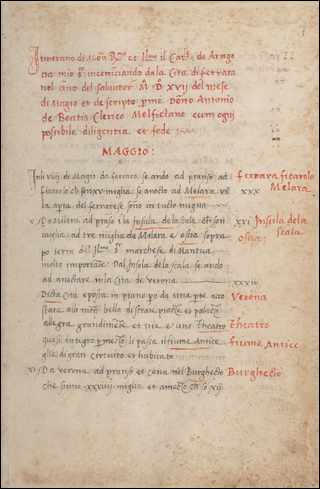 Itinerario di Mon.r R.mo et Ill.mo il Car.le de Aragona
mio S.r incominciando dala Cita di ferrara
nel año del salvator M D XVII del mese
di Magio et descripto p me Dono Antonio
de Beatis Clerico Melfictano cum ogni
possibile diligentia et fede
MAGGIO:
di Magio da ferrara se ando ad pranso ad
ficarolo miglia se anocto ad Melara
la qta del ferrarese sono in tucto miglia
ferrara ficarolo
xxx Melara
x Da Milara ad praso i la Insula de la scala son
miglia ad tre miglia da Milara e ostia sopra
po terra del Ill.mo S.r marchese di Mantua
molto importante Dal Insola dela scala se ando
ad anoctare in la Cita de Verona
xvi Insula dela
scala
ostia
xxxiii
Dicta Cita e posta in piano po da una pte
alli moti bella di strate piacze et palaczi
allegra grandimente et vi e uno Theatro
quasi integro p mecto li passa il fiume Antice
gli e di gran circuito et habitato
Verona
Theatro
fiume Antice
xi Da verona ad pranso et cena nel Burghecto
che sonno xxxiii miglia et
Burghecto